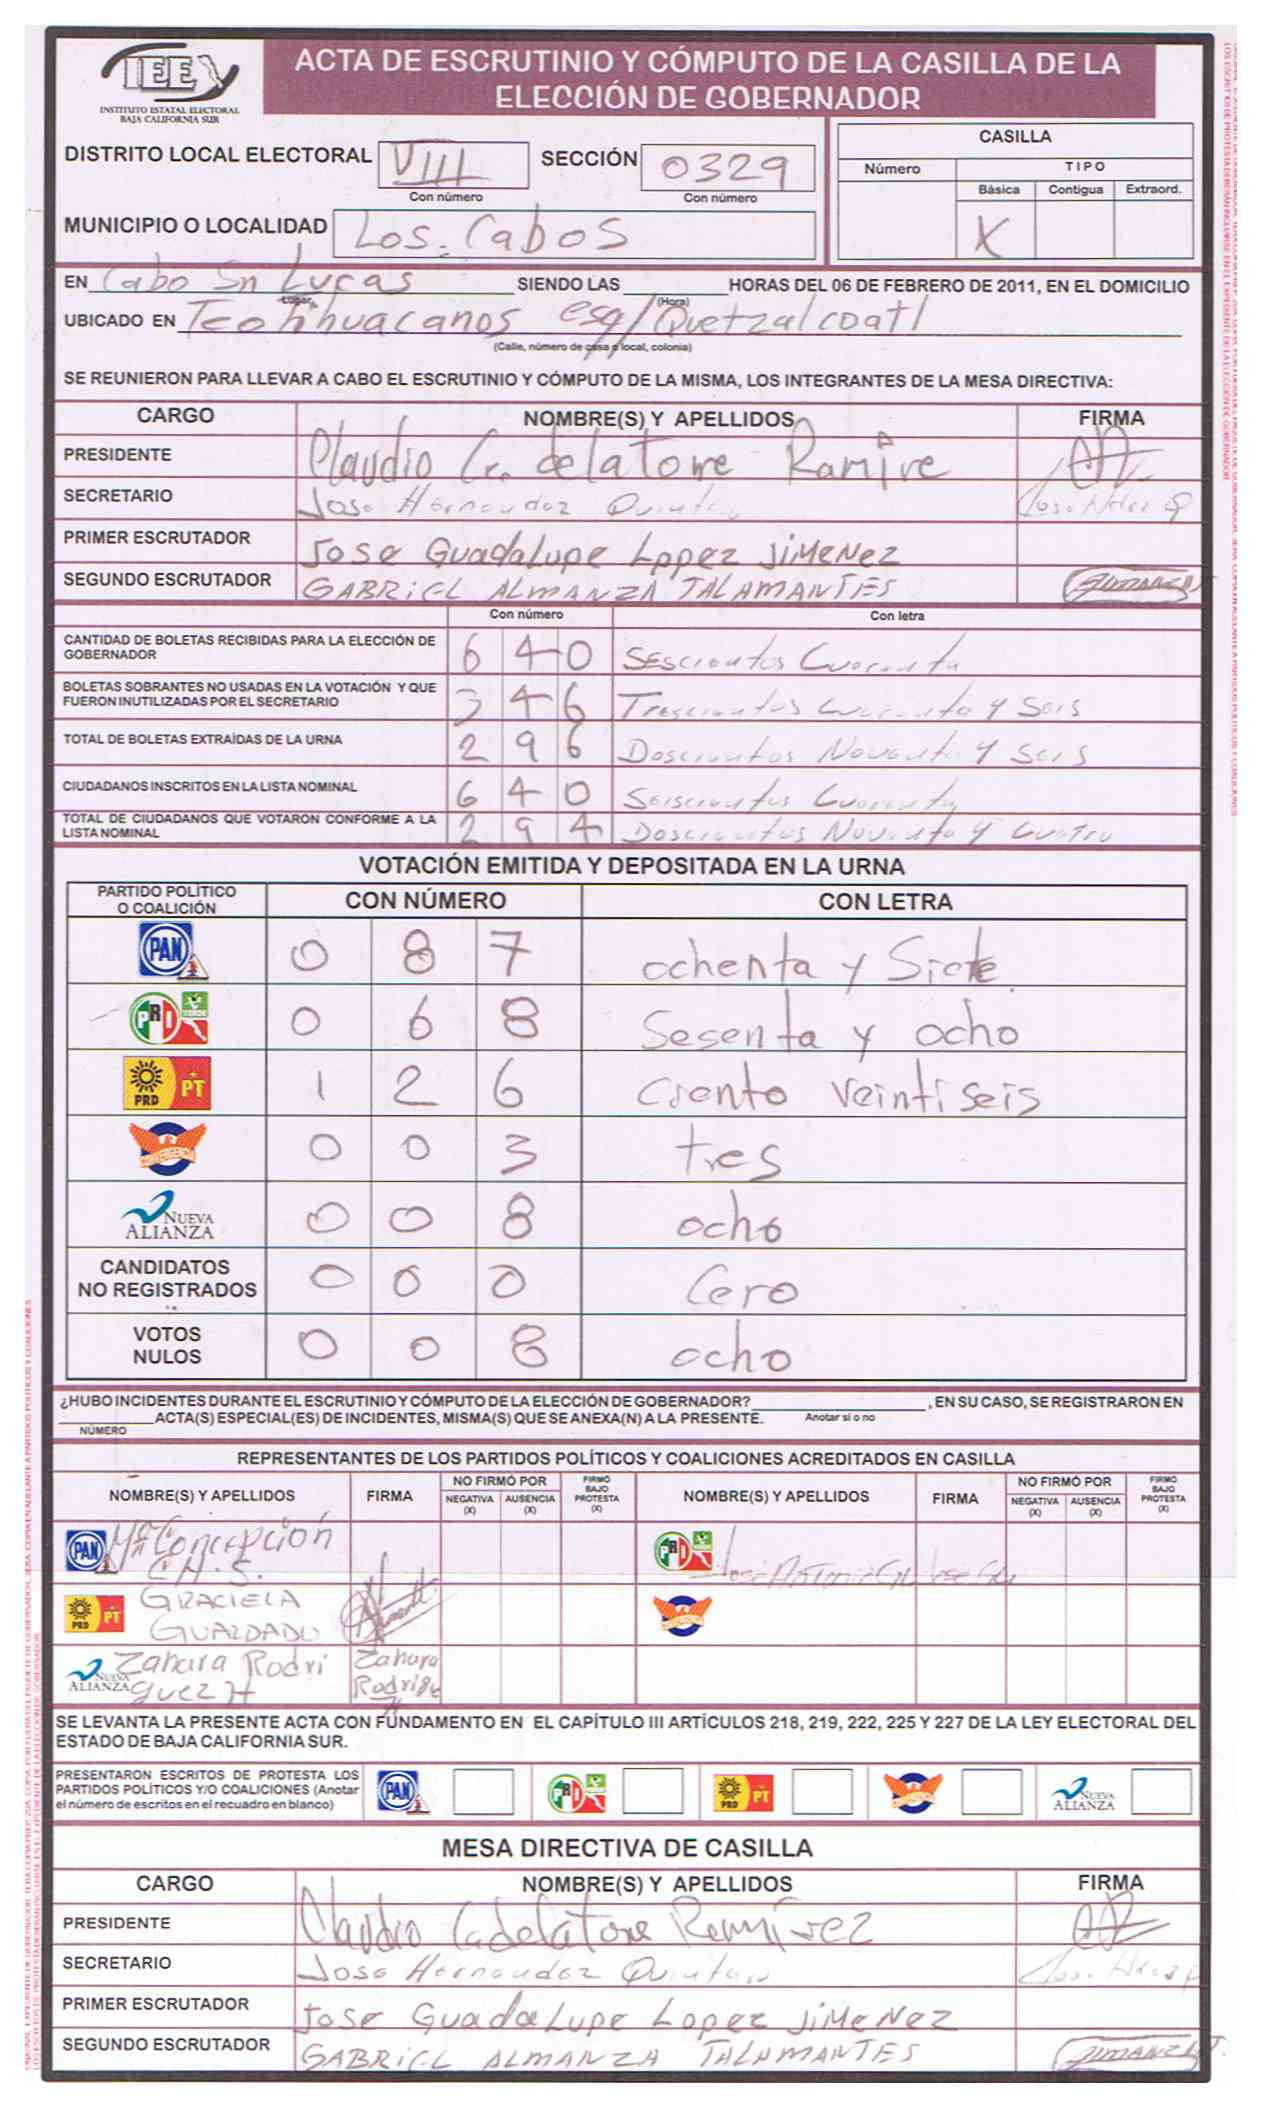 IEE
INSTITUTO ESTATAL ELECTORAL
BAJA CALIFORNIA SUR
ACTA DE ESCRUTINIO Y CÓMPUTO DE LA CASILLA DE LA
ELECCIÓN DE GOBERNADOR
DISTRITO LOCAL ELECTORAL VIII SECCIÓN 0329
Con número Con número
MUNICIPIO O LOCALIDAD Los. Cabos
CASILLA
Número TIPO
Básica Contigua Extraord.
X
EN Cabo Sn Lucas SIENDO LAS HORAS DEL 06 DE FEBRERO DE 2011, EN EL DOMICILIO
Lugar (Hora)
UBICADO EN Teotihuacanos esq/Quetzalcoatl
(Calle, número de casa o local, colonia)
SE REUNIERON PARA LLEVAR A CABO EL ESCRUTINIO Y CÓMPUTO DE LA MISMA, LOS INTEGRANTES DE LA MESA DIRECTIVA:
CARGO NOMBRE(S) Y APELLIDOS FIRMA
PRESIDENTE Claudio C. delatorre Ramire
SECRETARIO Jose Hernandez
PRIMER ESCRUTADOR Jose Guadalupe Lopez Jimenez
SEGUNDO ESCRUTADOR GABRIEL ALMANZA TALAMANTES ALMANZA
Con número Con letra
CANTIDAD DE BOLETAS RECIBIDAS PARA LA ELECCIÓN DE
GOBERNADOR 6 4 0 Sescientos Cuarenta
BOLETAS SOBRANTES NO USADAS EN LA VOTACIÓN Y QUE
FUERON INUTILIZADAS POR EL SECRETARIO 3 4 6 Trescientos Cuarenta y Seis
TOTAL DE BOLETAS EXTRAÍDAS DE LA URNA 2 9 6 Doscientos Noventa y Seis
CIUDADANOS INSCRITOS EN LA LISTA NOMINAL 6 4 0 Seiscientos Cuarenta
TOTAL DE CIUDADANOS QUE VOTARON CONFORME A LA
LISTA NOMINAL 2 9 4 Doscientos Noventa y Cuatro
VOTACIÓN EMITIDA Y DEPOSITADA EN LA URNA
PARTIDO POLÍTICO
O COALICIÓN CON NÚMERO CON LETRA
PAN 0 8 7 ochenta y Siete
PRI VERDE 0 6 8 Sesenta y ocho
PRD PT 1 2 6 Ciento veintiseis
CONVERGENCIA 0 0 3 tres
NUEVA ALIANZA 0 0 8 ocho
CANDIDATOS
NO REGISTRADOS 0 0 0 Cero
VOTOS
NULOS 0 0 8 ocho
¿HUBO INCIDENTES DURANTE EL ESCRUTINIO Y CÓMPUTO DE LA ELECCIÓN DE GOBERNADOR? , EN SU CASO, SE REGISTRARON EN
ACTA(S) ESPECIAL(ES) DE INCIDENTES, MISMA(S) QUE SE ANEXA(N) A LA PRESENTE. Anotar sí o no
NÚMERO
REPRESENTANTES DE LOS PARTIDOS POLÍTICOS Y COALICIONES ACREDITADOS EN CASILLA
NOMBRE(S) Y APELLIDOS FIRMA NO FIRMÓ POR NEGATIVA (X) AUSENCIA (X) FIRMÓ BAJO PROTESTA (X) NOMBRE(S) Y APELLIDOS FIRMA NO FIRMÓ POR NEGATIVA (X) AUSENCIA (X) FIRMÓ BAJO PROTESTA (X)
PAN Mª Concepción
C.H.S.
PRI Jose Antonio
PRD PT GRACIELA
GUALDADO
NUEVA ALIANZA Zahara Rodri
guez H
Zahara
Rodrigue
H
SE LEVANTA LA PRESENTE ACTA CON FUNDAMENTO EN EL CAPÍTULO III ARTÍCULOS 218, 219, 222, 225 Y 227 DE LA LEY ELECTORAL DEL
ESTADO DE BAJA CALIFORNIA SUR.
PRESENTARON ESCRITOS DE PROTESTA LOS
PARTIDOS POLÍTICOS Y/O COALICIONES (Anotar
el número de escritos en el recuadro en blanco)
PAN PRI PRD PT NUEVA ALIANZA
MESA DIRECTIVA DE CASILLA
CARGO NOMBRE(S) Y APELLIDOS FIRMA
PRESIDENTE Claudio Cadelatorre Ramírez
SECRETARIO Jose Hernandez
PRIMER ESCRUTADOR Jose Guadalupe Lopez Jimenez
SEGUNDO ESCRUTADOR GABRIEL ALMANZA TALAMANTES ALMANZA